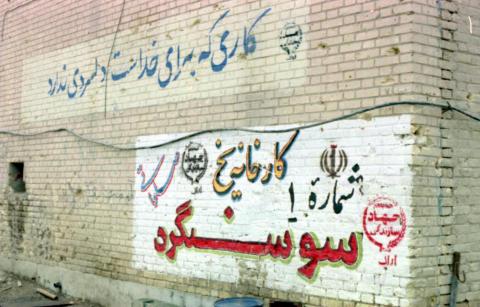 کاری که برای خداست دلسردی ندارد
کارخانه یخ
شماره ۱
سوسنگرد
جهاد
سازندگی
اراک